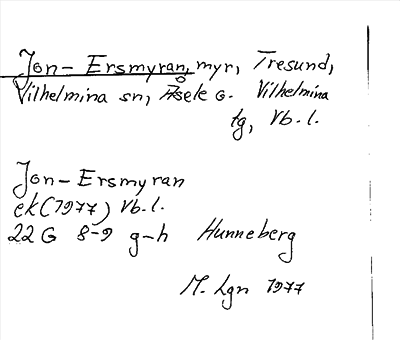 Jon-Ersmyran, myr, Tresund,
Vilhelmina sn, Åsele o. Vilhelmina
tg, Vb. l.
Jon-Ersmyran
ek (1977) Vb. l.
22 G 8-9 g-h Hunneberg
M. Lgn 1977